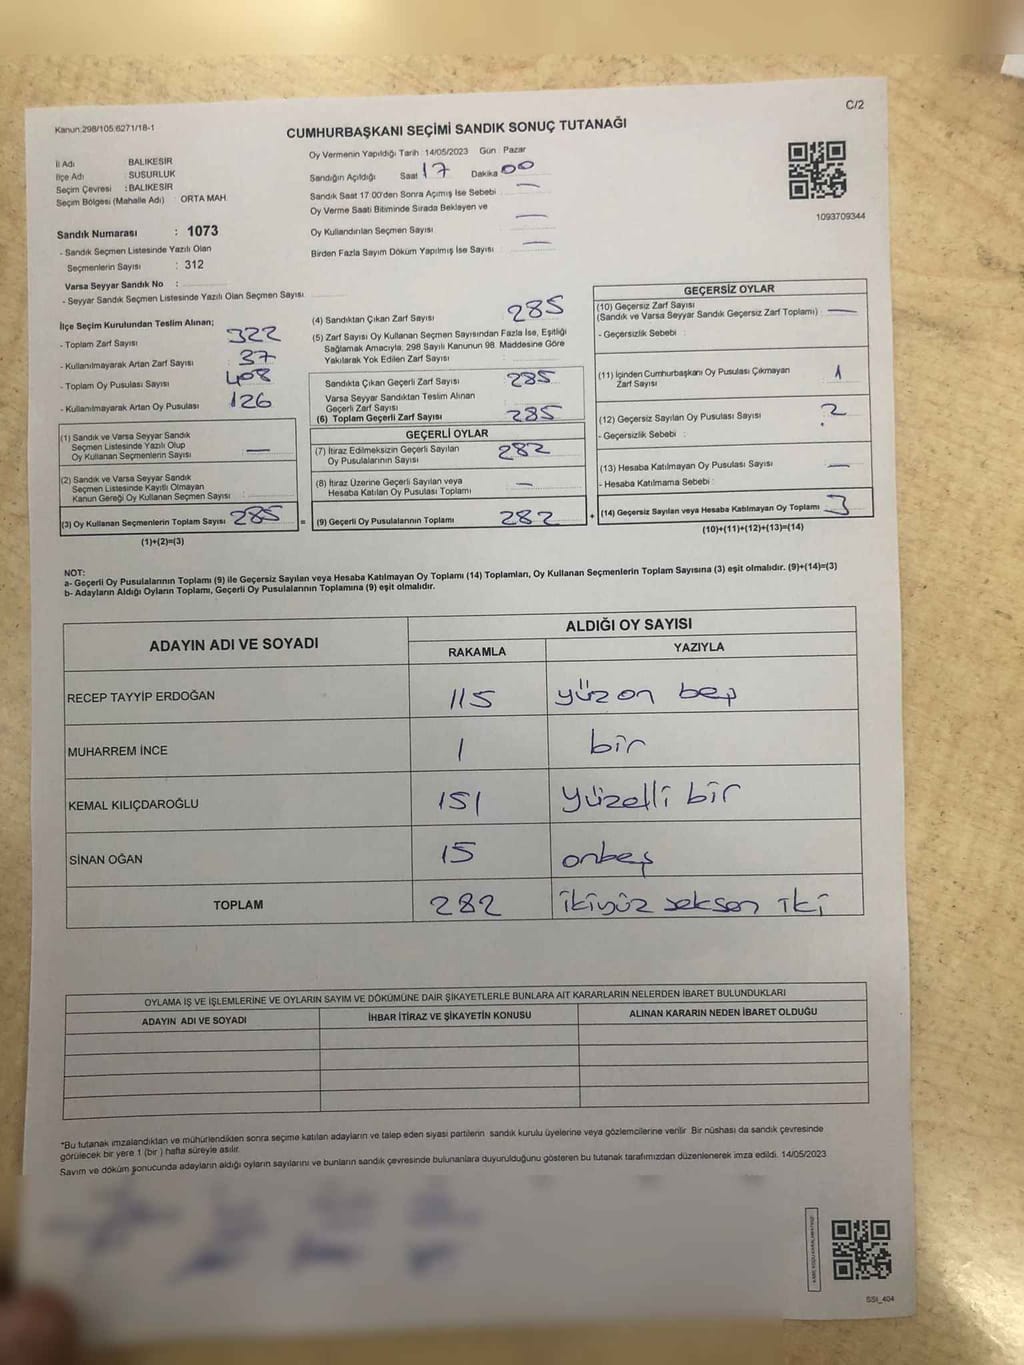 Kanun:298/105;6271/18-1
C/2
CUMHURBAŞKANI SEÇİMİ SANDIK SONUÇ TUTANAĞI
İl Adı BALIKESİR
İlçe Adı SUSURLUK
Seçim Çevresi : BALIKESİR
Seçim Bölgesi (Mahalle Adı) ORTA MAH.
Sandık Numarası : 1073
- Sandık Seçmen Listesinde Yazılı Olan
Seçmenlerin Sayısı : 312
Varsa Seyyar Sandık No :
- Seyyar Sandık Seçmen Listesinde Yazılı Olan Seçmen Sayısı
Oy Vermenin Yapıldığı Tarih : 14/05/2023 Gün : Pazar
Sandığın Açıldığı Saat 17 Dakika 00
Sandık Saat 17 00'den Sonra Açımış İse Sebebi —
Oy Verme Saati Bitiminde Sırada Bekleyen ve
Oy Kullandırılan Seçmen Sayısı —
Birden Fazla Sayım Döküm Yapılmış İse Sayısı —
1093709344
İlçe Seçim Kurulundan Teslim Alınan;
- Toplam Zarf Sayısı 322
- Kullanılmayarak Artan Zarf Sayısı 37
- Toplam Oy Pusulası Sayısı 408
- Kullanılmayarak Artan Oy Pusulası 126
(1) Sandık ve Varsa Seyyar Sandık
Seçmen Listesinde Yazılı Olup
Oy Kullanan Seçmenlerin Sayısı —
(2) Sandık ve Varsa Seyyar Sandık
Seçmen Listesinde Kayıtlı Olmayan
Kanun Gereği Oy Kullanan Seçmen Sayısı :
(3) Oy Kullanan Seçmenlerin Toplam Sayısı 285
(1)+(2)=(3)
(4) Sandıktan Çıkan Zarf Sayısı 285
(5) Zarf Sayısı Oy Kullanan Seçmen Sayısından Fazla İse, Eşitliği
Sağlamak Amacıyla; 298 Sayılı Kanunun 98. Maddesine Göre
Yakılarak Yok Edilen Zarf Sayısı :
Sandıkta Çıkan Geçerli Zarf Sayısı 285
Varsa Seyyar Sandıktan Teslim Alınan
Geçerli Zarf Sayısı
(6) Toplam Geçerli Zarf Sayısı 285
GEÇERLİ OYLAR
(7) İtiraz Edilmeksizin Geçerli Sayılan
Oy Pusulalarının Sayısı 282
(8) İtiraz Üzerine Geçerli Sayılan veya
Hesaba Katılan Oy Pusulası Toplamı —
= (9) Geçerli Oy Pusulalarının Toplamı 282 +
GEÇERSİZ OYLAR
(10) Geçersiz Zarf Sayısı
(Sandık ve Varsa Seyyar Sandık Geçersiz Zarf Toplamı) —
- Geçersizlik Sebebi :
(11) İçinden Cumhurbaşkanı Oy Pusulası Çıkmayan
Zarf Sayısı 1
(12) Geçersiz Sayılan Oy Pusulası Sayısı 2
- Geçersizlik Sebebi :
(13) Hesaba Katılmayan Oy Pusulası Sayısı —
- Hesaba Katılmama Sebebi :
(14) Geçersiz Sayılan veya Hesaba Katılmayan Oy Toplamı 3
(10)+(11)+(12)+(13)=(14)
NOT:
a- Geçerli Oy Pusulalarının Toplamı (9) ile Geçersiz Sayılan veya Hesaba Katılmayan Oy Toplamı (14) Toplamları, Oy Kullanan Seçmenlerin Toplam Sayısına (3) eşit olmalıdır. (9)+(14)=(3)
b- Adayların Aldığı Oyların Toplamı, Geçerli Oy Pusulalarının Toplamına (9) eşit olmalıdır.
ADAYIN ADI VE SOYADI ALDIĞI OY SAYISI
RAKAMLA YAZIYLA
RECEP TAYYİP ERDOĞAN 115 yüz on beş
MUHARREM İNCE 1 bir
KEMAL KILIÇDAROĞLU 151 yüzelli bir
SİNAN OĞAN 15 onbeş
TOPLAM 282 ikiyüz seksen iki
OYLAMA İŞ VE İŞLEMLERİNE VE OYLARIN SAYIM VE DÖKÜMÜNE DAİR ŞİKAYETLERLE BUNLARA AİT KARARLARIN NELERDEN İBARET BULUNDUKLARI
ADAYIN ADI VE SOYADI İHBAR İTİRAZ VE ŞİKAYETİN KONUSU ALINAN KARARIN NEDEN İBARET OLDUĞU
*Bu tutanak imzalandıktan ve mühürlendikten sonra seçime katılan adayların ve talep eden siyasi partilerin sandık kurulu üyelerine veya gözlemcilerine verilir. Bir nüshası da sandık çevresinde
görülecek bir yere 1 (bir ) hafta süreyle asılır.
Sayım ve döküm sonucunda adayların aldığı oyların sayılarını ve bunların sandık çevresinde bulunanlara duyurulduğunu gösteren bu tutanak tarafımızdan düzenlenerek imza edildi. 14/05/2023
SSI_404